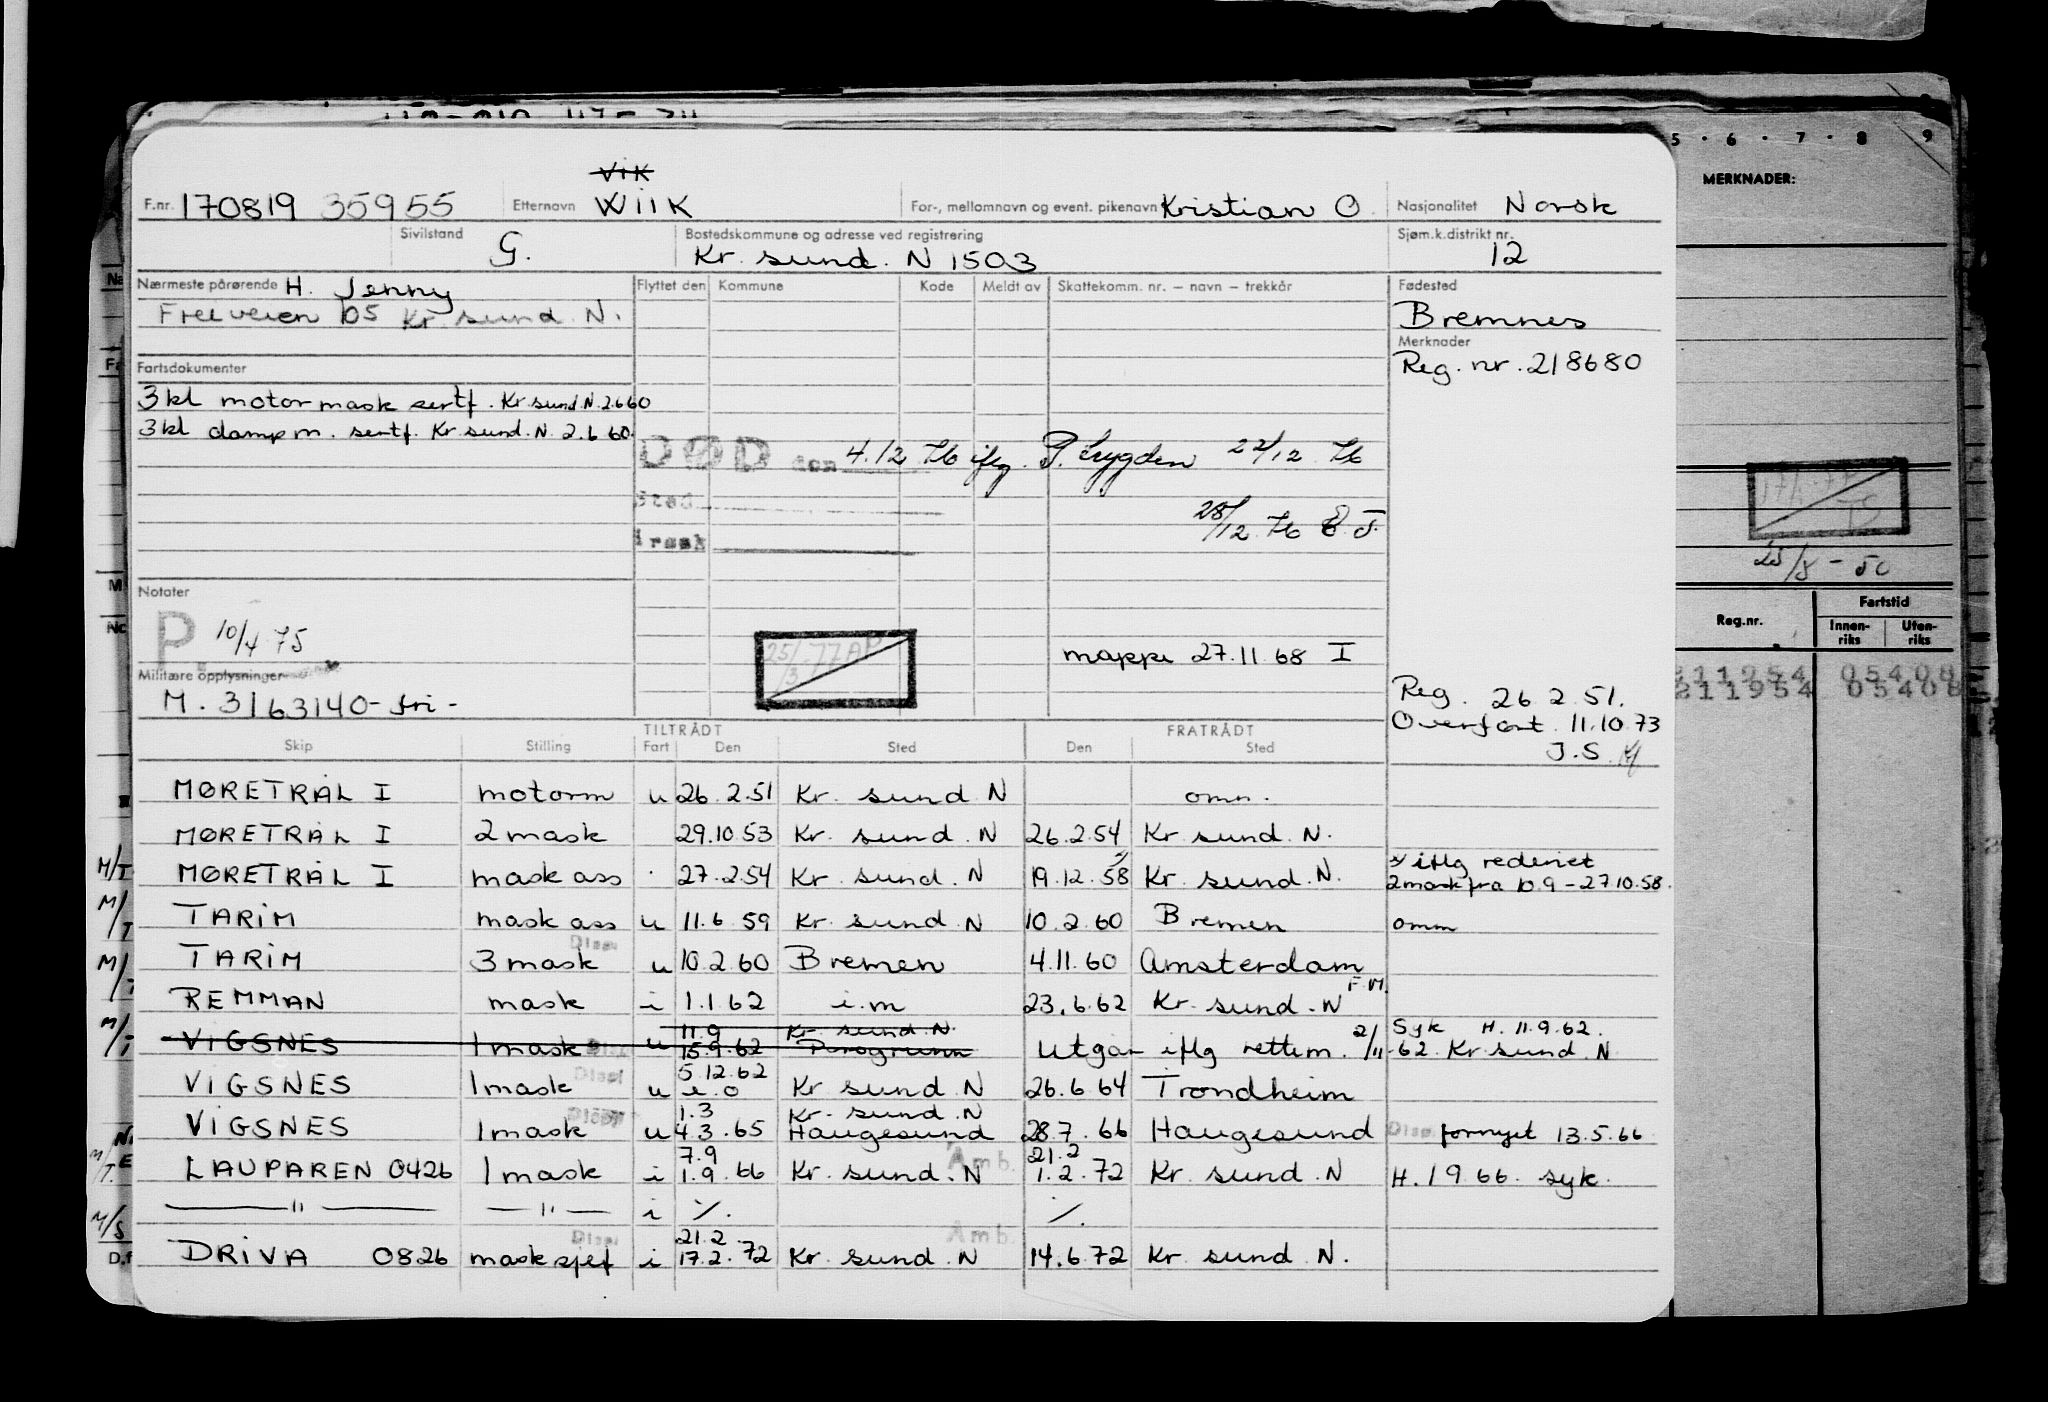 5 · 6 · 7 · 8 9
MERKNADER:
Vik
F.nr. 170819 35955 Etternavn Wiik For-, mellomnavn og event. pikenavn Kristian O. Nasjonalitet Norsk
Sivilstand G. Bostedskommune og adresse ved registrering Kr. sund. N 1503 Sjøm.k.distrikt nr. 12
Nærmeste pårørende H. Jenny Flyttet den Kommune Kode Meldt av Skattekomm. nr. – navn – trekkår Fødested
Freiveien 105 Kr. sund. N. Bremnes
Merknader
Fartsdokumenter Reg. nr. 218680
3 kl motormask sertf. Kr. sund. N. 2.6 60
3 kl damp m. sertf. Kr. sund. N. 2.6 60.
DØD den 4.12 76 iflg. P. Lygden 22/12 76
Sted
Årsak 28/12 76
Notater
P 10/4 75
25/3 77 mappe 27.11 68 I
Militære opplysninger
M. 3163140 - fri -
Reg. 26 2.51.
Overført. 11.10.73
J.S.
TILTRÅDT FRATRÅDT
Skip Stilling Fart Den Sted Den Sted
MØRETRÅL I motorm u 26.2.51 Kr. sund N omm.
MØRETRÅL I 2 mask 29.10.53 Kr. sund. N 26.2.54 Kr sund. N.
M/T MØRETRÅL I mask ass 27.2.54 Kr. sund. N 19.12.58 Kr. sund. N. x/ iflg rederiet
2 mask fra 10.9 – 27.10.58.
M/T TARIM mask ass u 11.6.59 Kr. sund. N 10.2.60 Bremen omm
Disp.
M/T TARIM 3 mask u 10.2.60 Bremen 4.11.60 Amsterdam
REMMAN mask i 1.1.62 i.m 23.6.62 Kr. sund. N F.M.
M/T VIGSNES 1 mask Disp u 11.9 15.9.62 Kr. sund. N. Porsgrunn Utgår iflg rettem. 2/11-62. Syk H. 11.9.62. Kr. sund. N
VIGSNES 1 mask Disp u 5.12.62 e.o Kr sund. N 26.6.64 Trondheim
VIGSNES 1 mask Disp u 1.3 4.3.65 Kr. sund. N Haugesund 28.7.66 Haugesund Disp. fornyet 13.5.66
M/T LAUPAREN 0426 1 mask i 7.9 1.9.66 Kr. sund. N Amb. 21.2 1.2.72 Kr. sund. N H. 1 9 66. syk.
— " — — " — i ./. ./.
M/S DRIVA 0826 mask sjef Disp i 21.2 17.2.72 Kr. sund. N Amb. 14.6.72 Kr. sund. N.
25/8 – 50
Reg.nr. Fartstid
Innenriks Utenriks
211954 05408
211954 05408